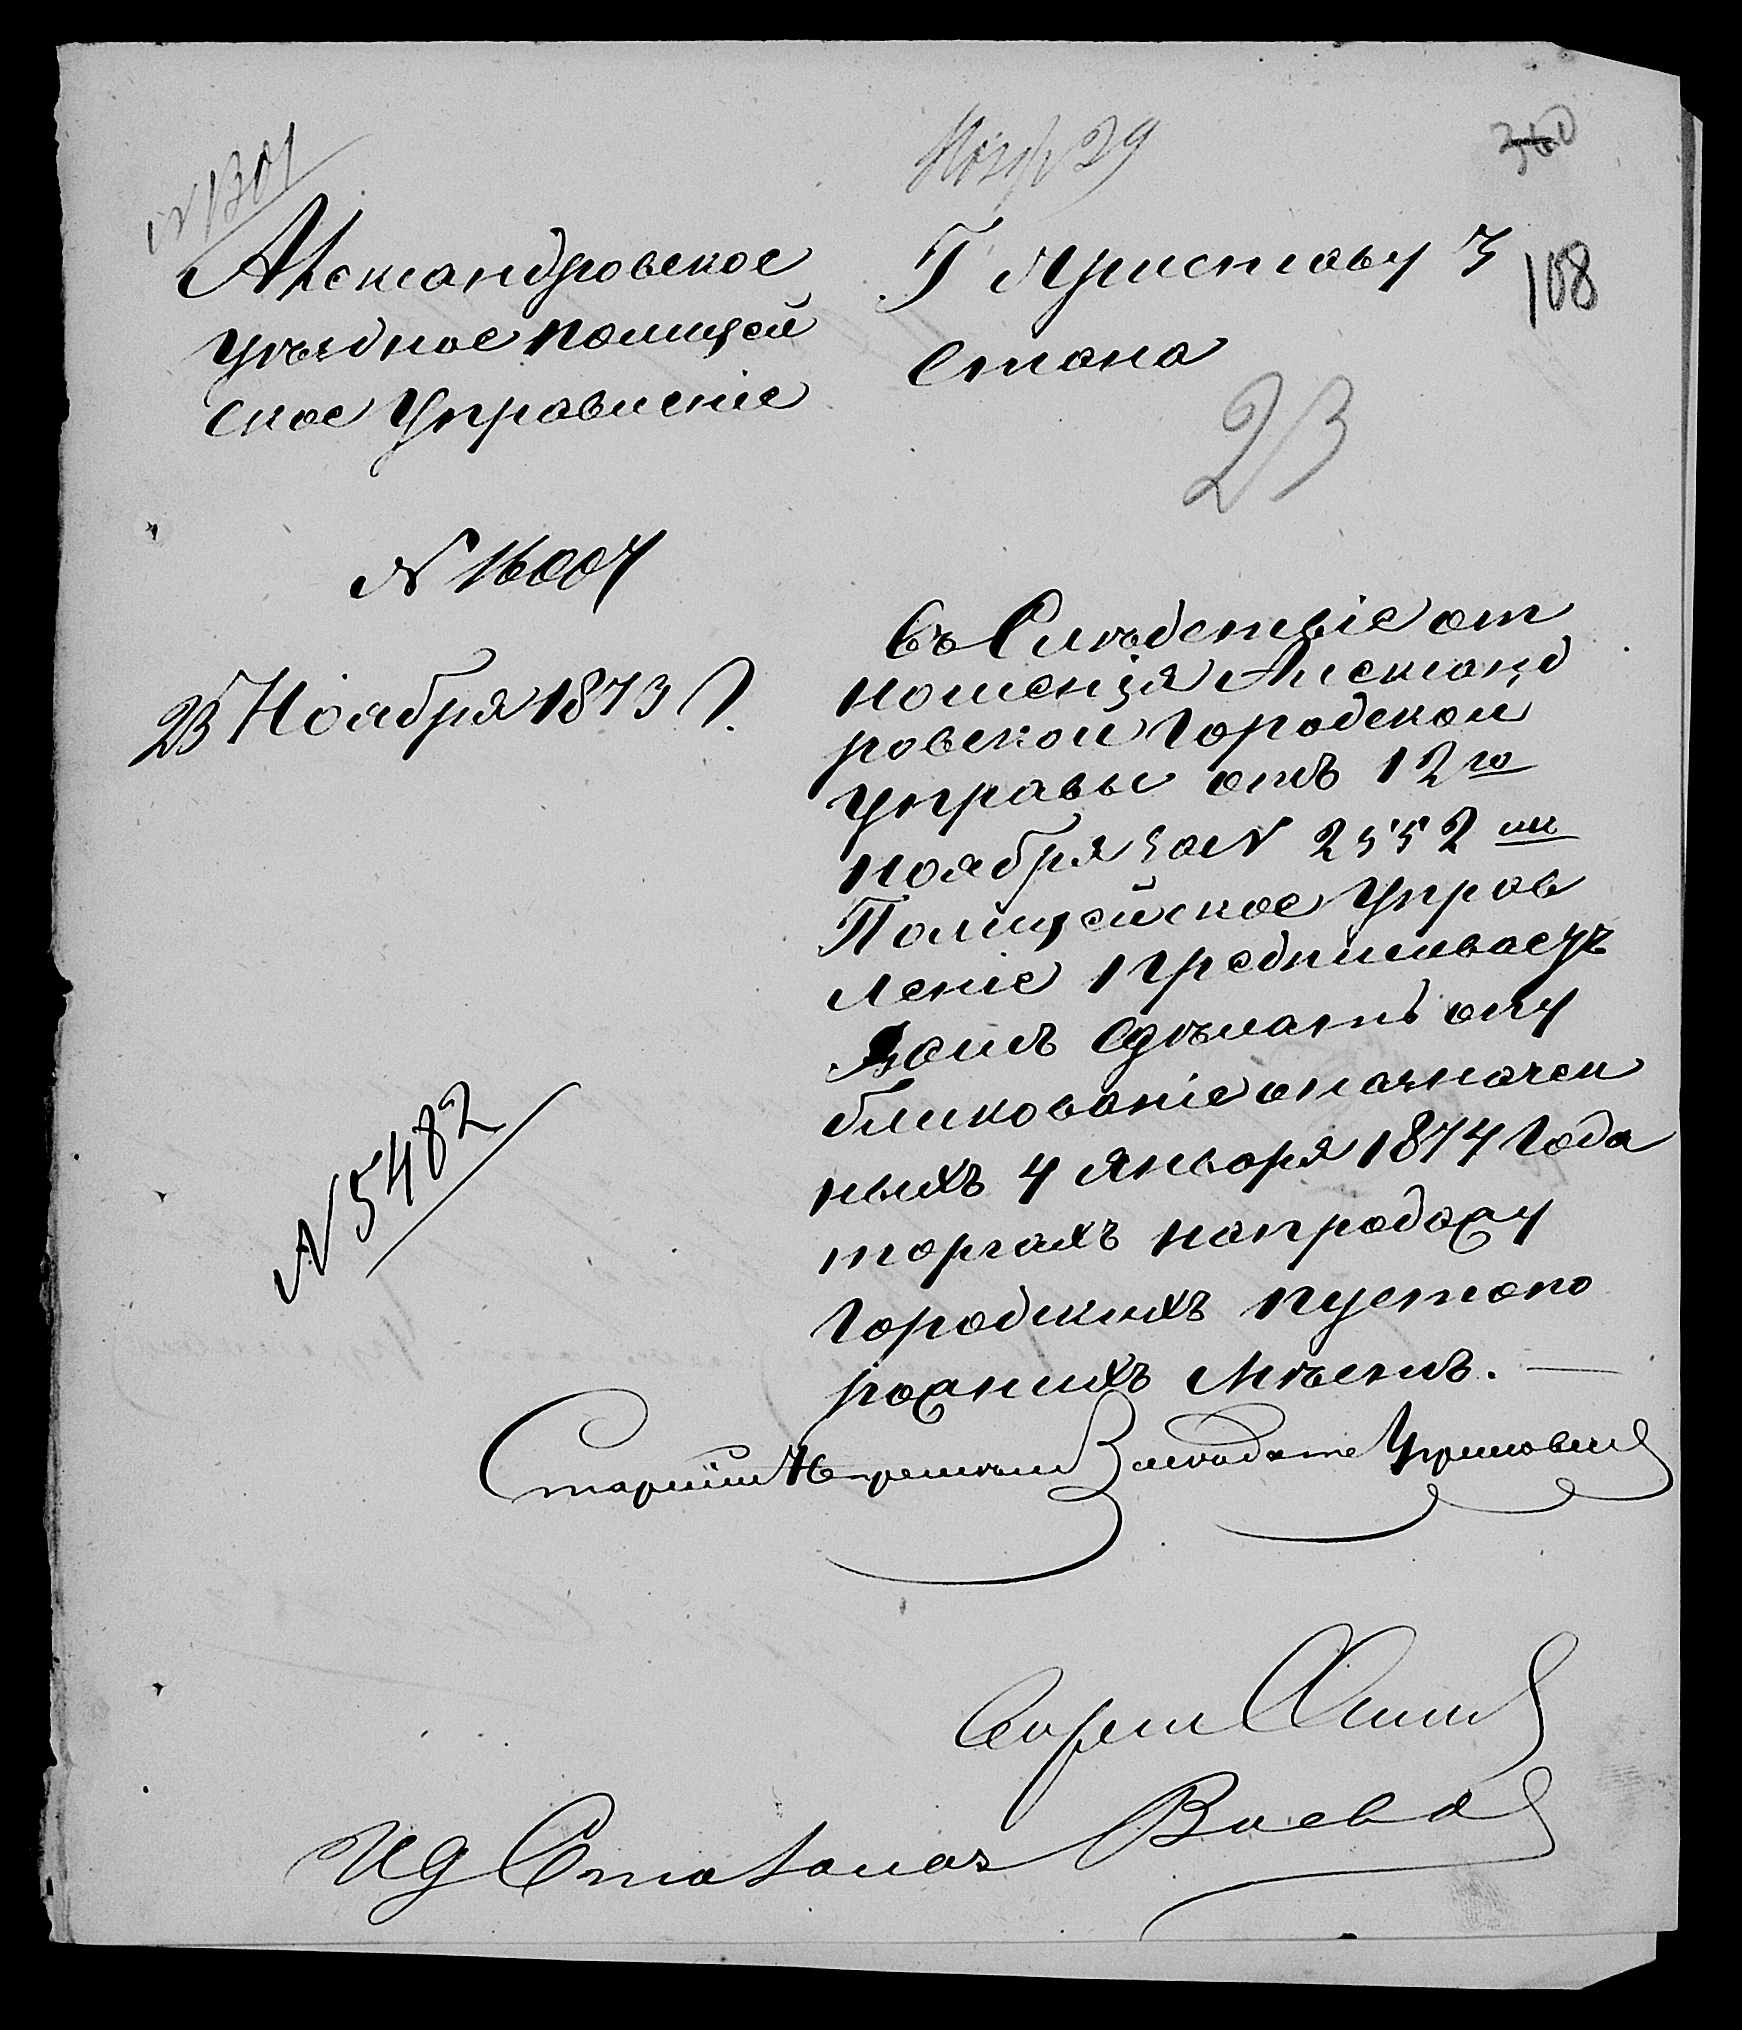 N 1301
Нояб 29
360
108
Александровское
уѣздное полицей
ское Управленіе
Г Приставу 3
Стана
23
N 16007
23 Ноября 1873 г.
N 5482
Въ Слѣдствіе от
ношенія Александ
ровской Городской
управы отъ 12го
ноября за N 2552мъ
Полицейское Управ
леніе предписываетъ
Вамъ сдѣлать опу
бликованіе о назначен
ныхъ 4 Января 1874 Года
торгахъ на продажу
Городскихъ пустопо
рожнихъ мѣстъ. —
Старшій
Секрет
ИД Столонач